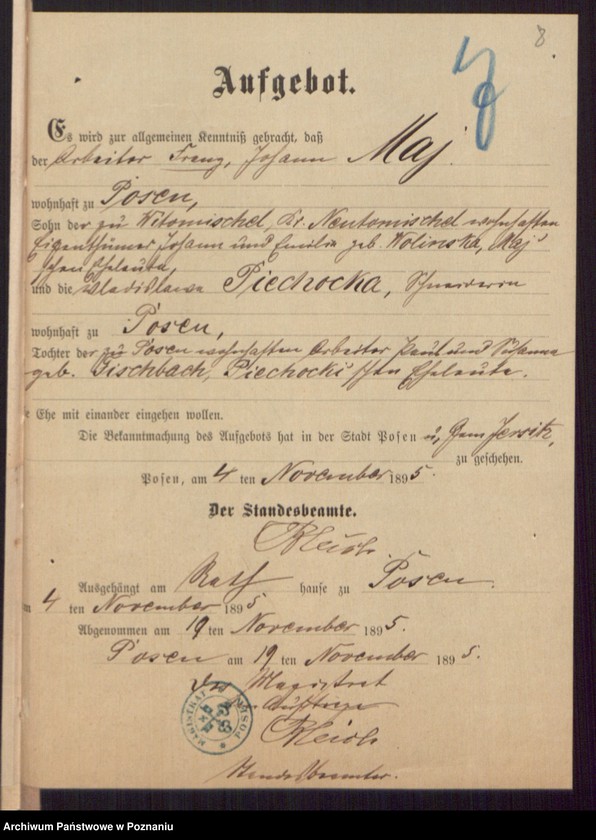 8
Aufgebot.
Es wird zur allgemeinen Kenntniß gebracht, daß
der Arbeiter Franz, Johann Maj
wohnhaft zu Posen,
Sohn der zu Witomischel, Kr. Neutomischel wohnhaften
Eigenthümer Johann und Emilia geb. Wolinska, Maj
schen Eheleute,
und die Wladislawa Piechocka, Schneiderin
wohnhaft zu Posen,
Tochter der zu Posen wohnhaften Arbeiter Paul und
geb. Fischbach, Piechocki'schen Eheleute.
e Ehe mit einander eingehen wollen.
Die Bekanntmachung des Aufgebots hat in der Stadt Posen u. Gem Jersitz,
zu geschehen.
Posen, am 4 ten November 1895.
Der Standesbeamte.
Ausgehängt am Rath hause zu Posen.
m 4 ten November 1895
Abgenommen am 19 ten November 1895.
Posen am 19 ten November 1895.
Der Magistrat
Auftrage
Standesbeamter.
MAGISTRAT POSEN
Archiwum Państwowe w Poznaniu